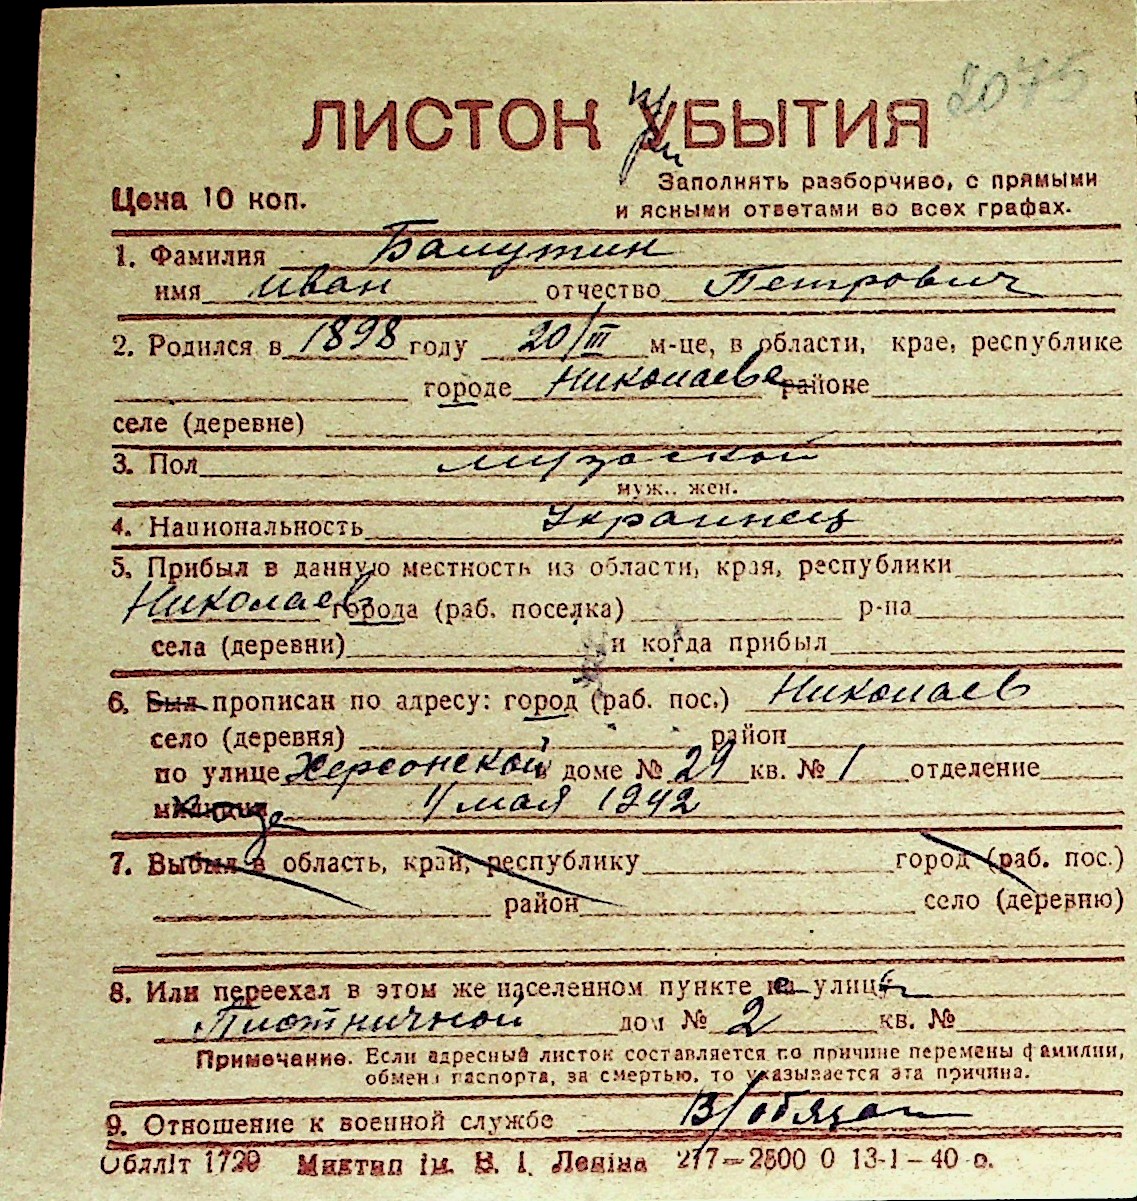 2075
ЛИСТОК УБЫТИЯ
При
Цена 10 коп.
Заполнять разборчиво, с прямыми
и ясными ответами во всех графах.
1. Фамилия Балутин
имя Иван отчество Петрович
2. Родился в 1898 году 20/III м-це, в области, крае, республике
городе Николаеве районе
селе (деревне)
3. Пол мужской
муж.. жен.
4. Национальность Украинец
5. Прибыл в данную местность из области, края, республики
Николаев города (раб. поселка) р-на
села (деревни) и когда прибыл
6. Был прописан по адресу: город (раб. пос.) Николаев
село (деревня) район
по улице Херсонской в доме № 29 кв. № 1 отделение
милиции Когда 1/мая 1942
7. Выбыл в область, край, республику город (раб. пос.)
район село (деревню)
8. Или переехал в этом же населенном пункте на улицу
Плотничной дом № 2 кв. №
Примечание. Если адресный листок составляется по причине перемены фамилии,
обмена паспорта, за смертью, то указывается эта причина.
9. Отношение к военной службе В/обязан
Обллiт 1729 Миктип iм. В. I. Ленiна 277—2500 0 13-1-40 р.